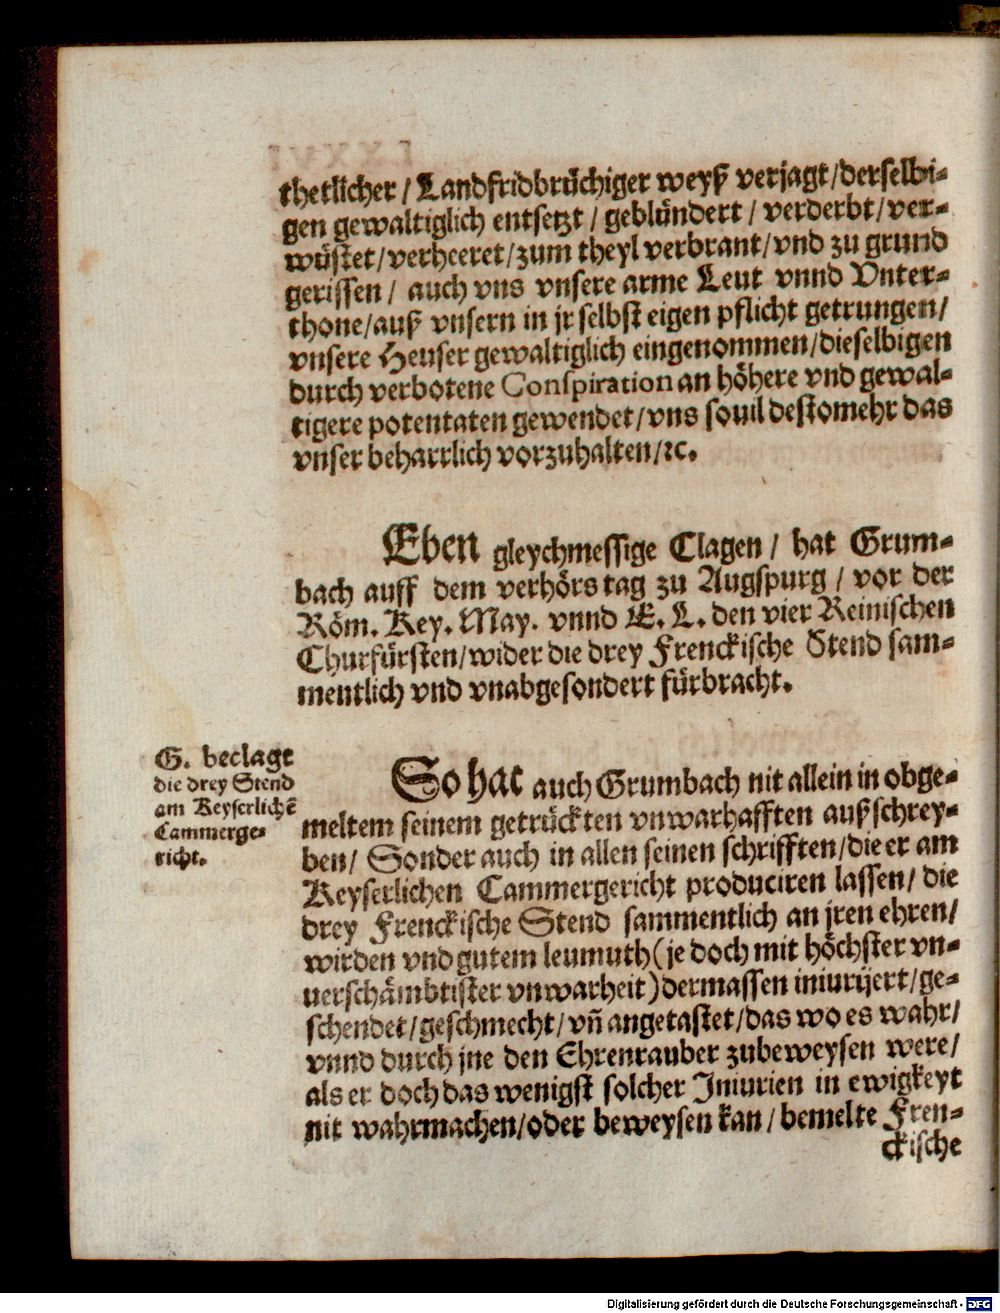 thetlicher / Landfridbrüchiger weyß verjagt / derselbi-
gen gewaltiglich entsetzt / geblündert / verderbt / ver-
wüstet / verheeret / zum theyl verbrant / vnd zu grund
gerissen / auch vns vnsere arme Leut vnnd Vnter-
thone / auß vnsern in jr selbst eigen pflicht getrungen /
vnsere Heuser gewaltiglich eingenommen / dieselbigen
durch verbotene Conspiration an höhere vnd gewal-
tigere potentaten gewendet / vns souil destomehr das
vnser beharrlich vorzuhalten / ꝛc.
Eben gleychmessige Clagen / hat Grum-
bach auff dem verhörs tag zu Augspurg / vor der
Röm. Key. May. vnnd E. L. den vier Reinischen
Churfürsten / wider die drey Frenckische Stend sam-
mentlich vnd vnabgesondert fürbracht.
G. beclagt
die drey Stend
am Keyserlichẽ
Cammerge-
richt.
So hat auch Grumbach nit allein in obge-
meltem seinem getrückten vnwarhafften außschrey-
ben / Sonder auch in allen seinen schrifften / die er am
Keyserlichen Cammergericht produciren lassen / die
drey Frenckische Stend sammentlich an jren ehren /
wirden vnd gutem leumuth (je doch mit höchster vn-
uerschämbtister vnwarheit) dermassen iniurijert / ge-
schendet / geschmecht / vñ angetastet / das wo es wahr /
vnnd durch jne den Ehrenrauber zubeweysen were /
als er doch das wenigst solcher Iniurien in ewigkeyt
nit wahrmachen / oder beweysen kan / bemelte Fren-
ckische
Digitalisierung gefördert durch die Deutsche Forschungsgemeinschaft - DFG